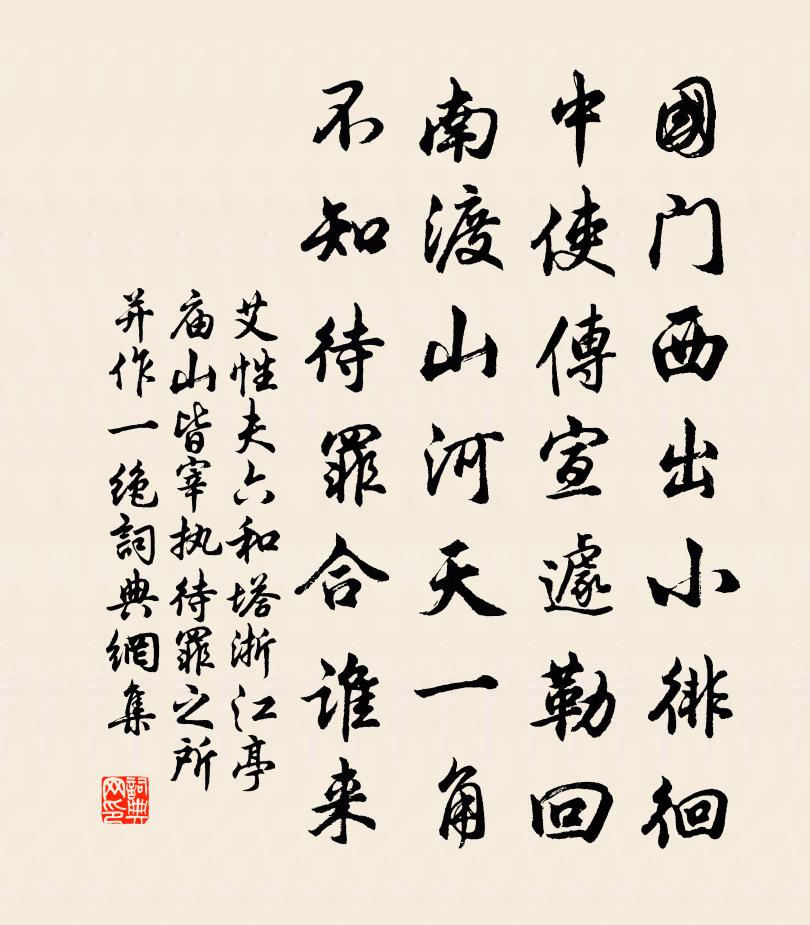 國门西出小徘徊
中使傳宣遽勒回
南渡山河天一角
不知待罪合谁来
艾性夫六和塔浙江亭
庙山皆宰执待罪之所
并作一绝詞典網集
詞典
网印